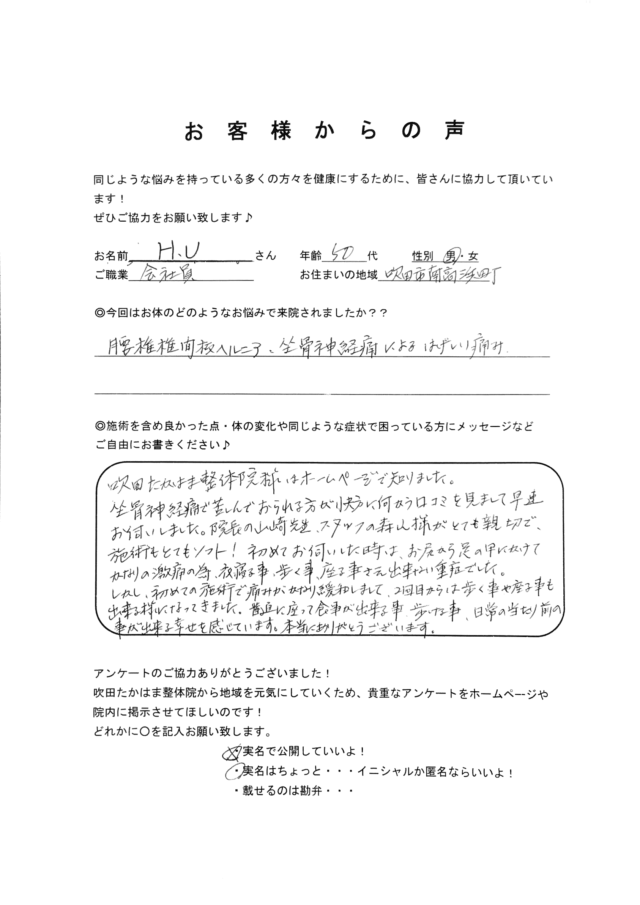 お客様からの声
同じような悩みを持っている多くの方々を健康にするために、皆さんに協力して頂いてい
ます！
ぜひご協力をお願い致します♪
お名前 H.U さん 年齢 50 代 性別 男・女
ご職業 会社員 お住まいの地域 吹田市南高浜町
◎今回はお体のどのようなお悩みで来院されましたか？？
腰椎椎間板ヘルニア、坐骨神経痛によるはげしい痛み
◎施術を含め良かった点・体の変化や同じような症状で困っている方にメッセージなど
ご自由にお書きください♪
吹田たかはま整体院様はホームページで知りました。
坐骨神経痛で悩んでおられる方が快方に何かう口コミを見まして早速
お伺いしました。院長の山崎先生、スタッフの森山様がとても親切で、
施術もとてもソフト！初めてお伺いした時は、お尻から足の甲にかけて
かなりの激痛の為、夜寝る事、歩く事、座る事さえ出来ない重症でした。
しかし、初めての施術で痛みがかなり緩和しまして、2回目からは歩く事や座る事も
出来る様になってきました。最近は座って食事が出来る事、歩ける事、日常の当たり前の
事が出来る幸せを感じています。本当にありがとうございます。
アンケートのご協力ありがとうございました！
吹田たかはま整体院から地域を元気にしていくため、貴重なアンケートをホームページや
院内に掲示させてほしいのです！
どれかに〇を記入お願い致します。
・実名で公開していいよ！
・実名はちょっと・・・イニシャルか匿名ならいいよ！
・載せるのは勘弁・・・